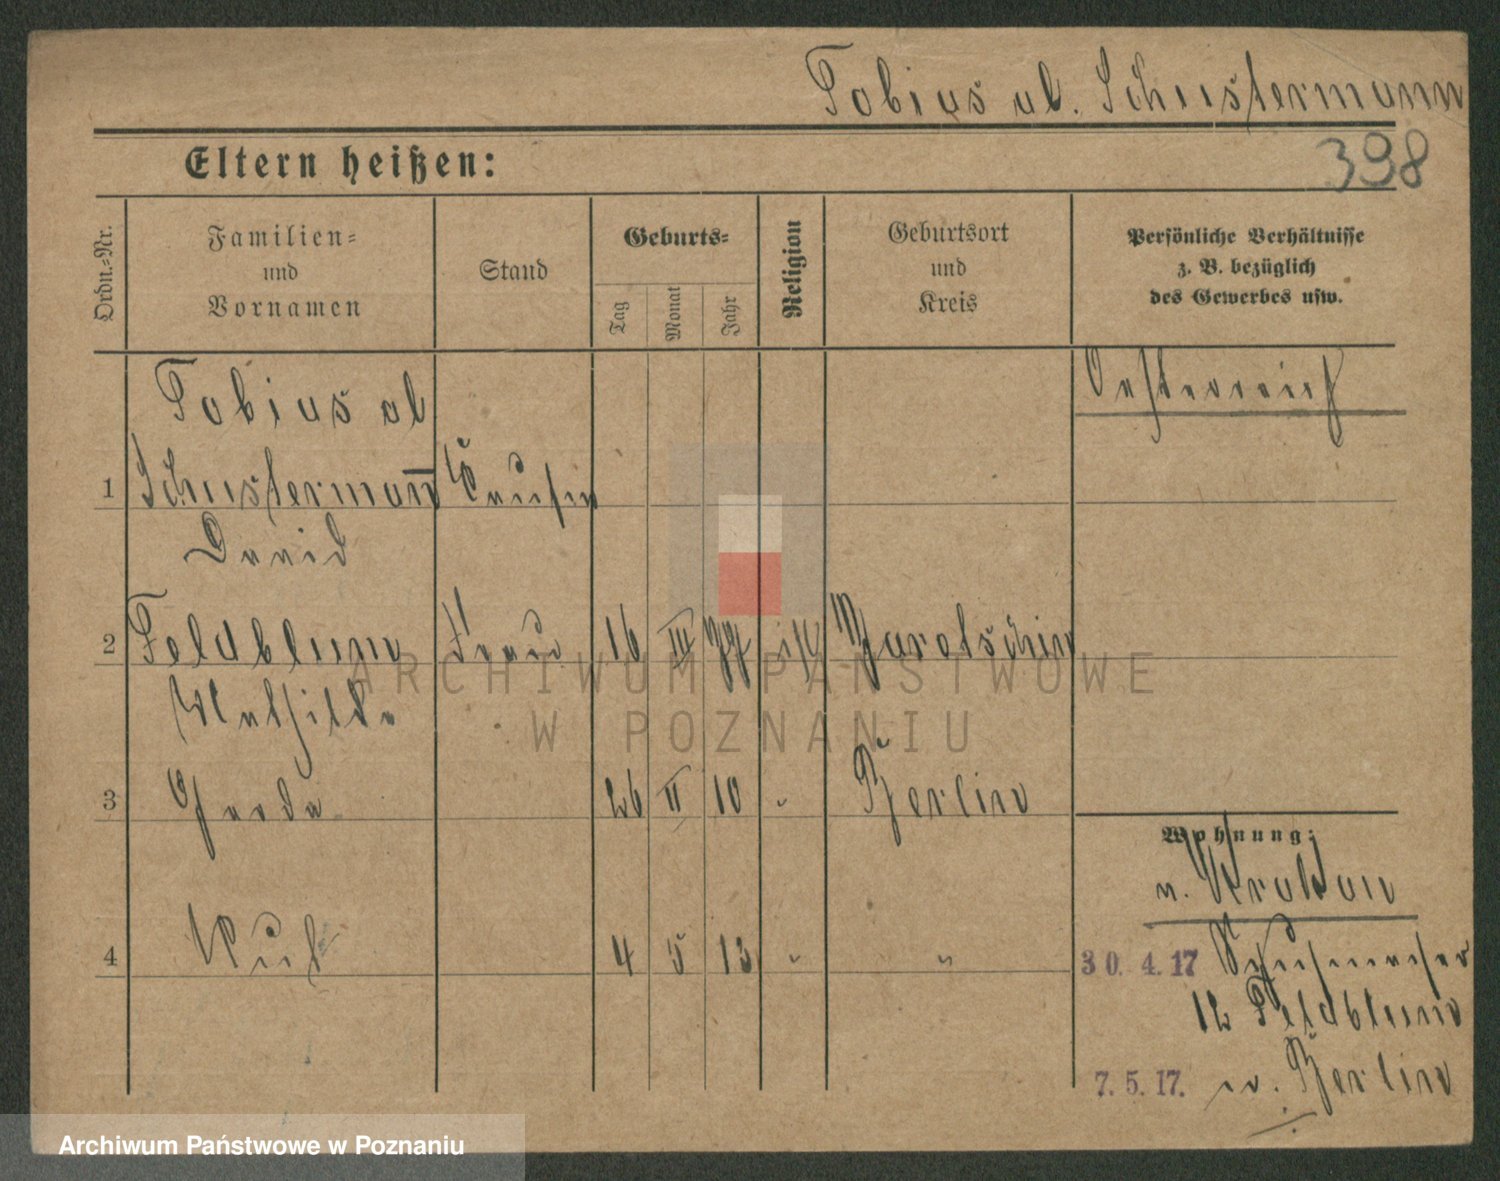 Tobias al. Schustermann
398
Eltern heißen:
Ordn.-Nr.
Familien-
und
Vornamen
Stand
Geburts-
Tag
Monat
Jahr
Religion
Geburtsort
und
Kreis
Persönliche Verhältnisse
z. B. bezüglich
des Gewerbes usw.
Tobias al
Oesterreich
1 Schustermann̄ Kaufm
David
2 Feldblum Frau 16 III is Jarotschin
Mathilde
3 Gerda 26 II 10 " Berlin
Wohnung:
v. Krakau
4 Rut 4 5 13 " "
30. 4. 17 Schuhmacher
12 Feldblum
7. 5. 17. n. Berlin
ARCHIWUM PAŃSTWOWE
W POZNANIU
Archiwum Państwowe w Poznaniu